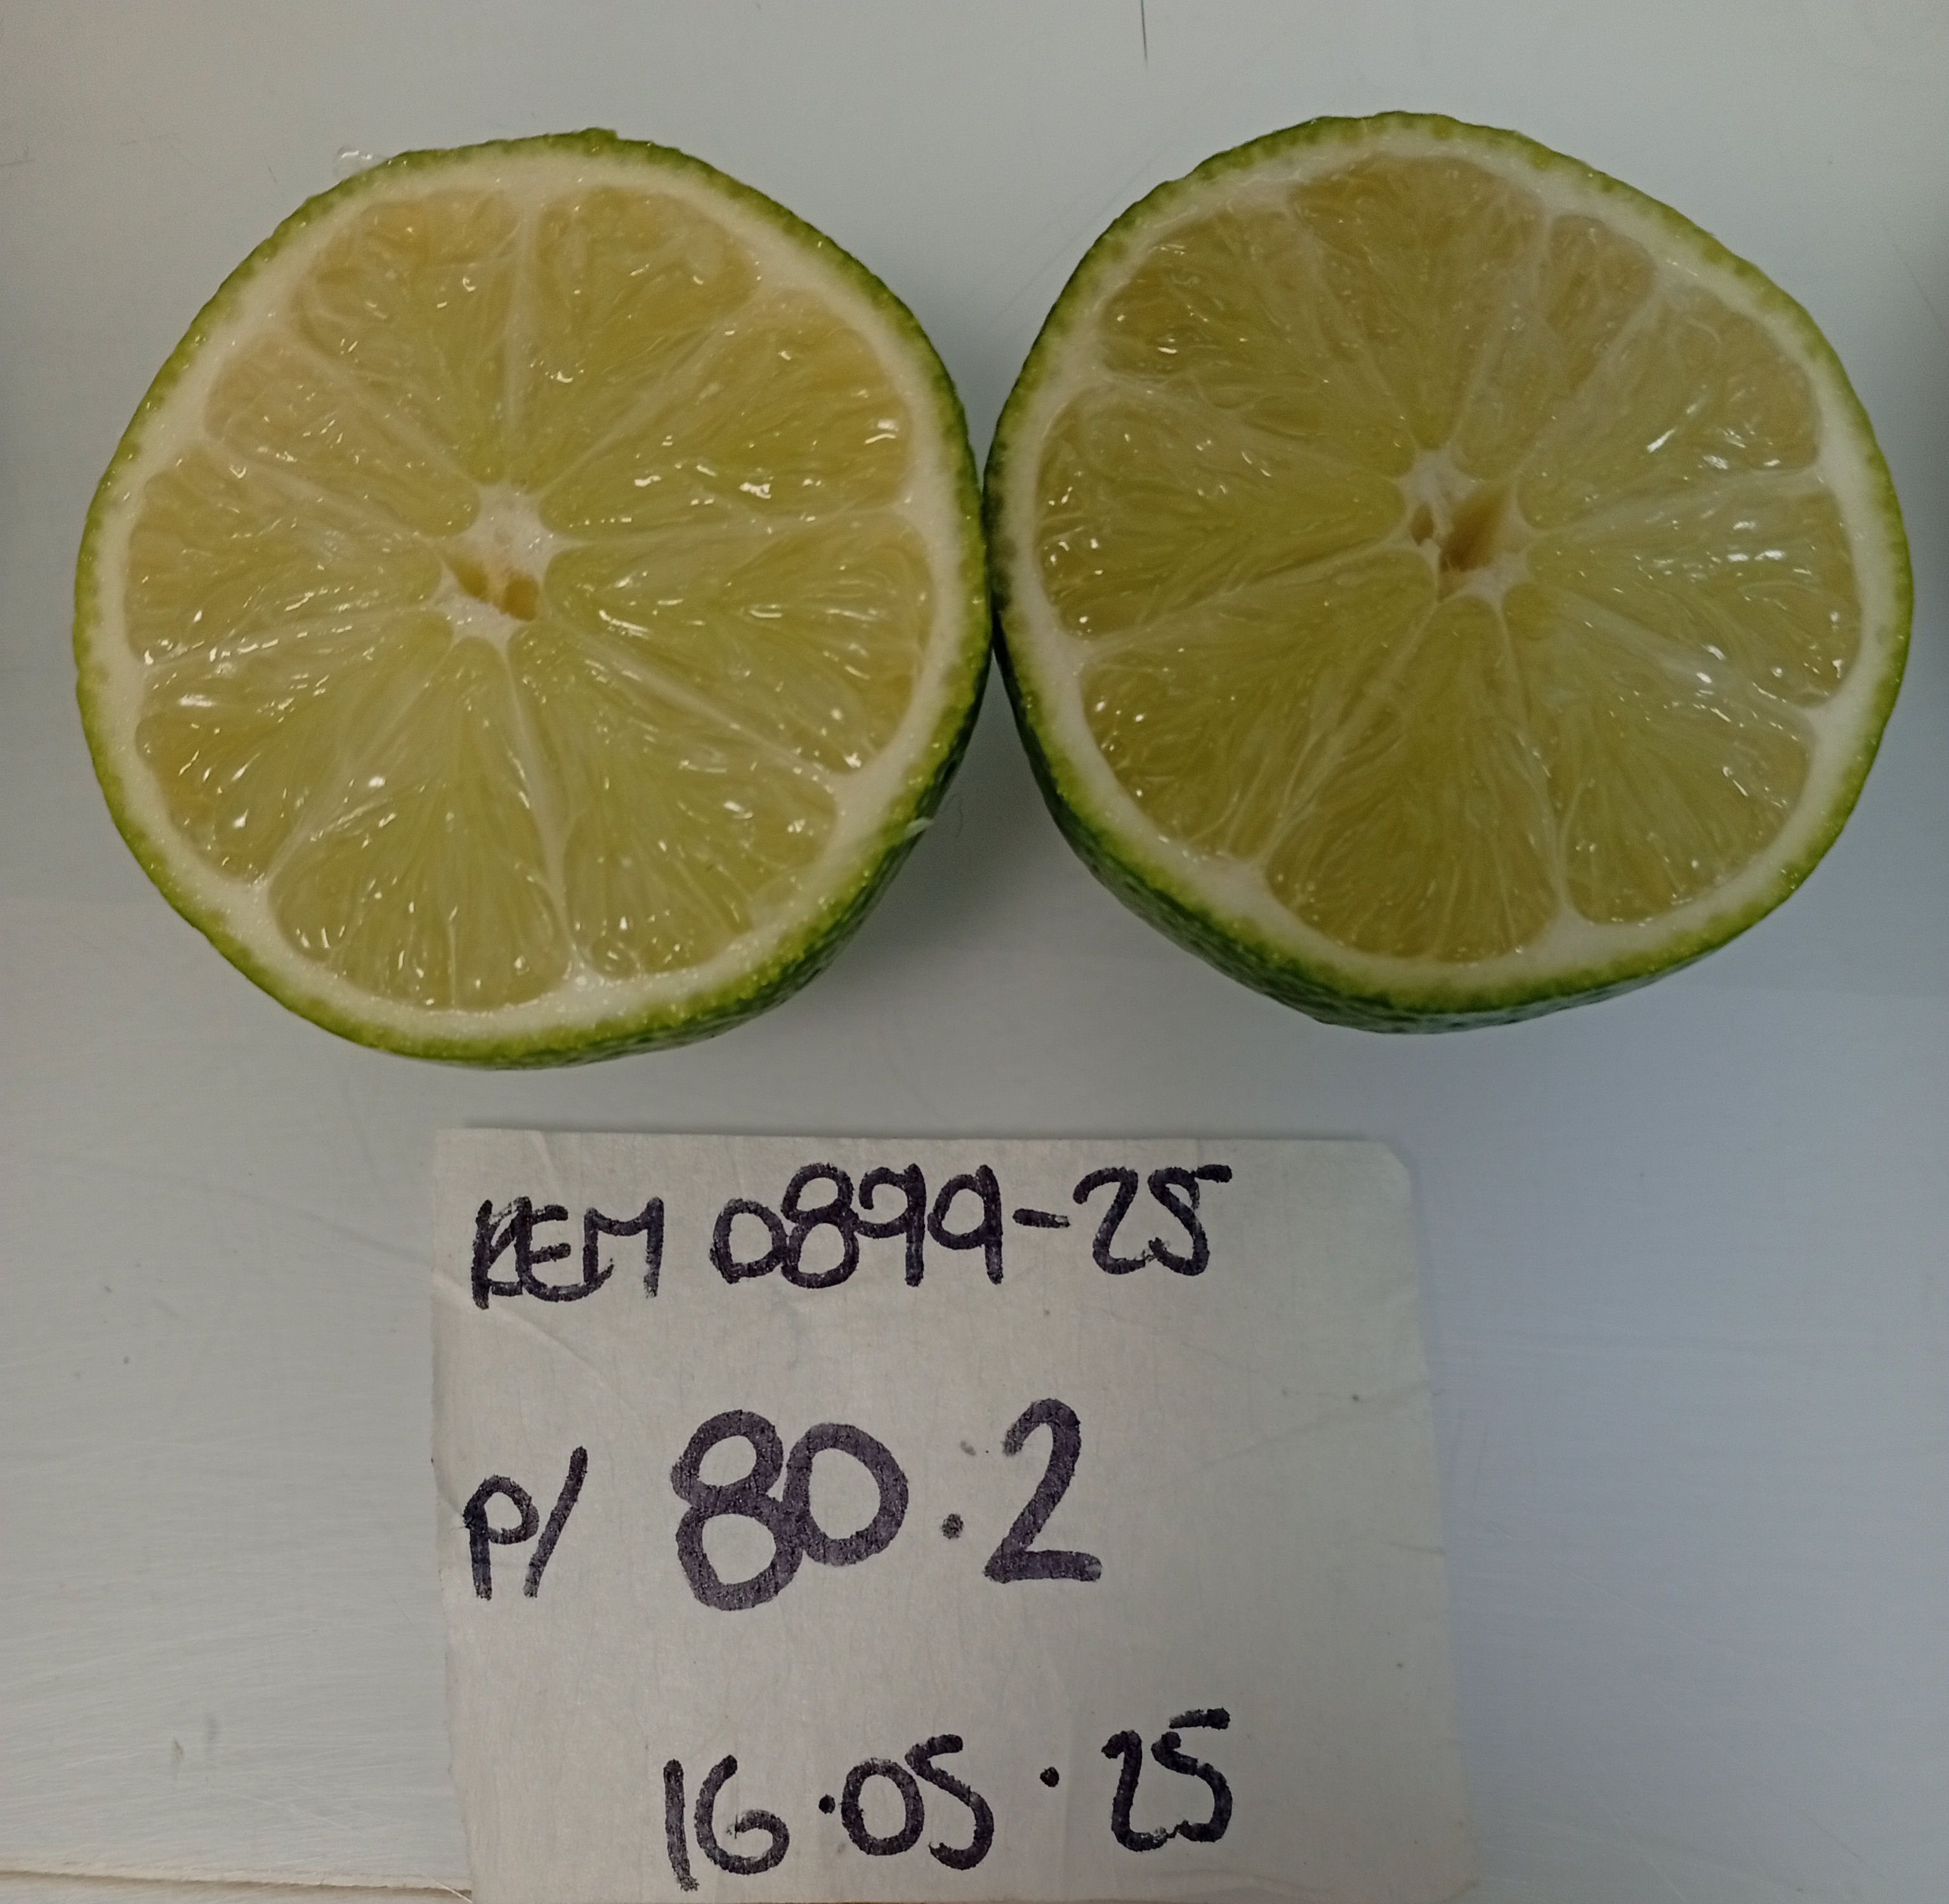 REM 0899-25
P/ 80.2
16.05.25